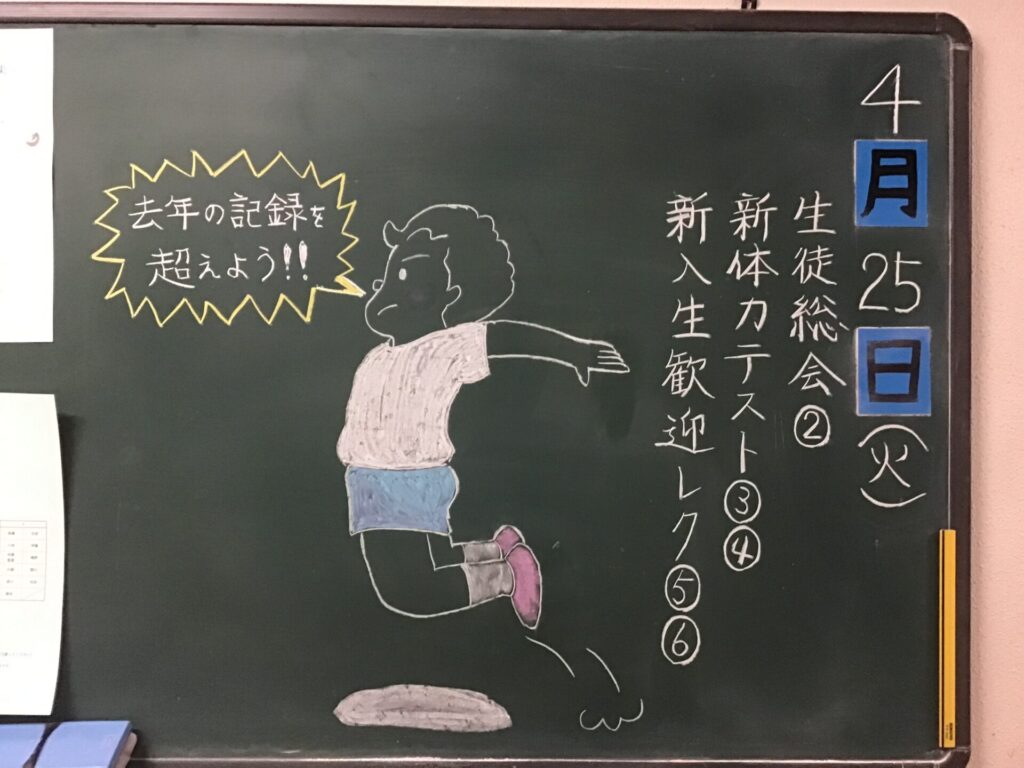 4月25日(火)
生徒総会②
新体力テスト③④
新入生歓迎レク⑤⑥
去年の記録を
超えよう!!